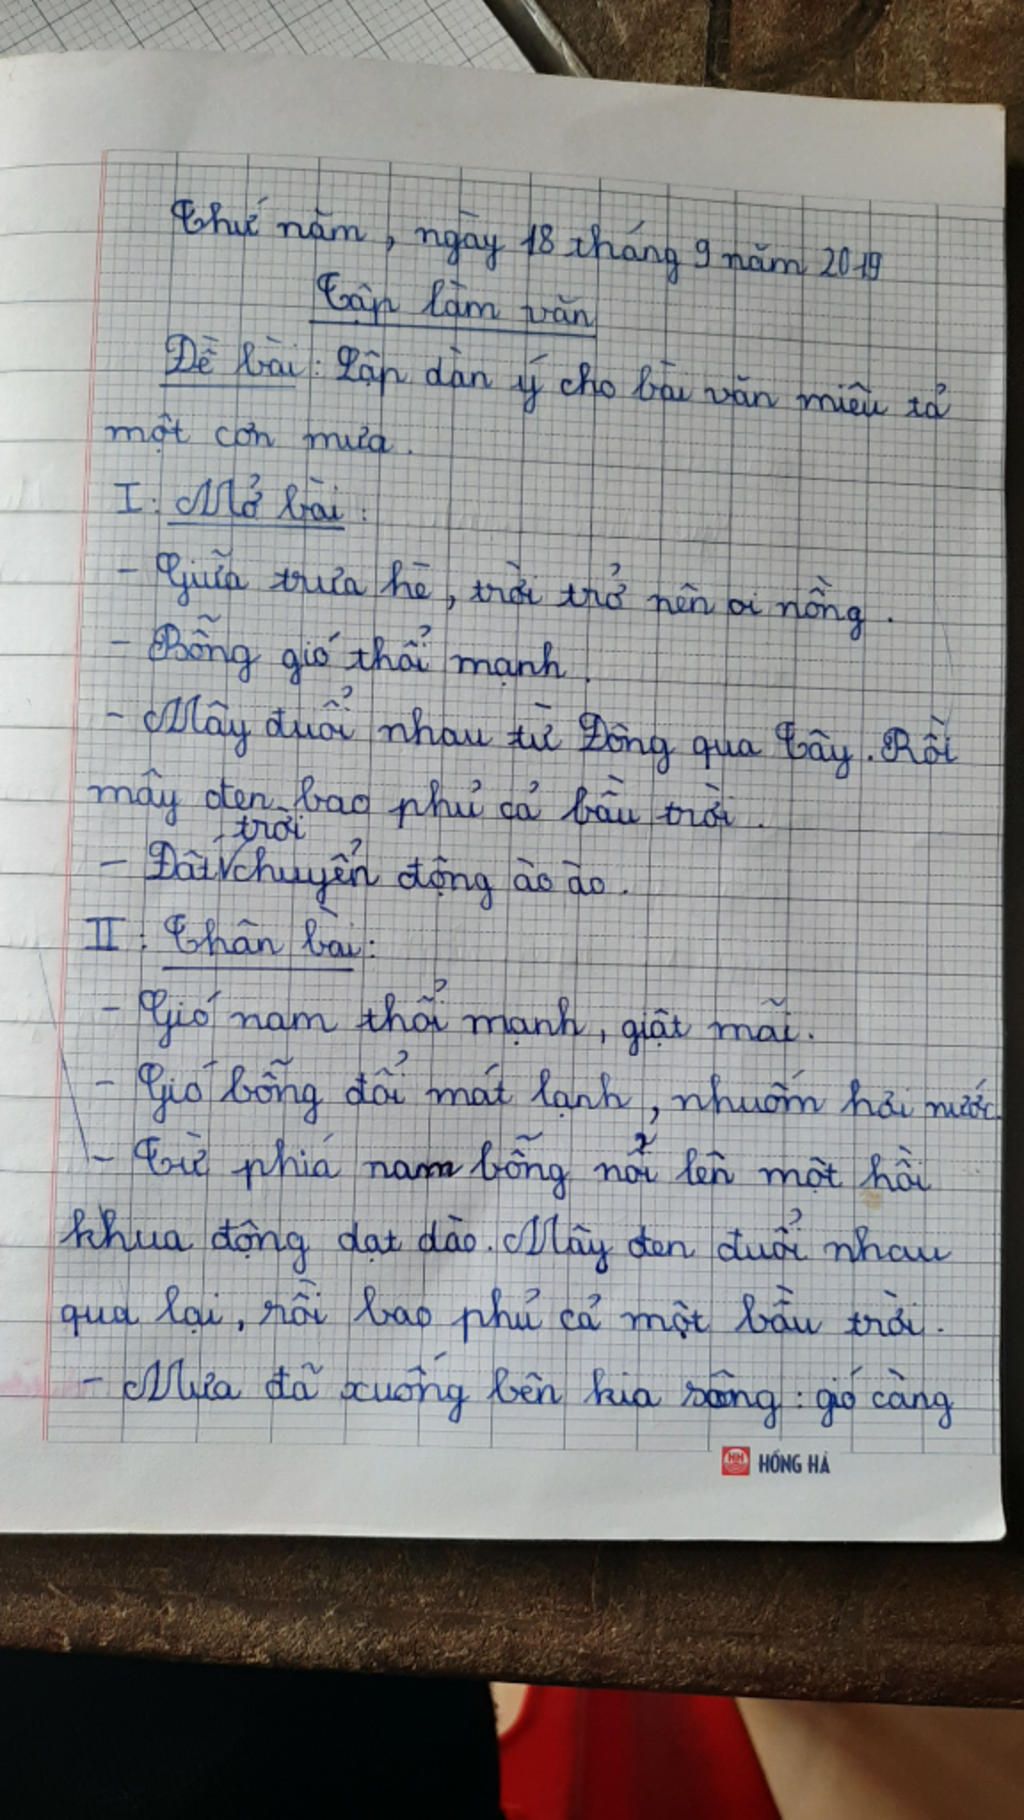 Thứ năm, ngày 18 tháng 9 năm 2019
Tập làm văn
Đề bài: Lập dàn ý cho bài văn miêu tả
một cơn mưa.
I: Mở bài:
- Giữa trưa hè, trời trở nên oi nồng.
- Bỗng gió thổi mạnh.
- Mây đuổi nhau từ Đông qua Tây. Rồi
mây đen bao phủ cả bầu trời.
trời
- Đất chuyển động ào ào.
II: Thân bài:
- Gió nam thổi mạnh, giật mãi.
- Gió bỗng đổi mát lạnh, nhuốm hơi nước.
- Từ phía nam bỗng nổi lên một hồi
khua động dạt dào. Mây đen đuổi nhau
qua lại, rồi bao phủ cả một bầu trời.
- Mưa đã xuống bên kia sông: gió càng
HỒNG HÀ